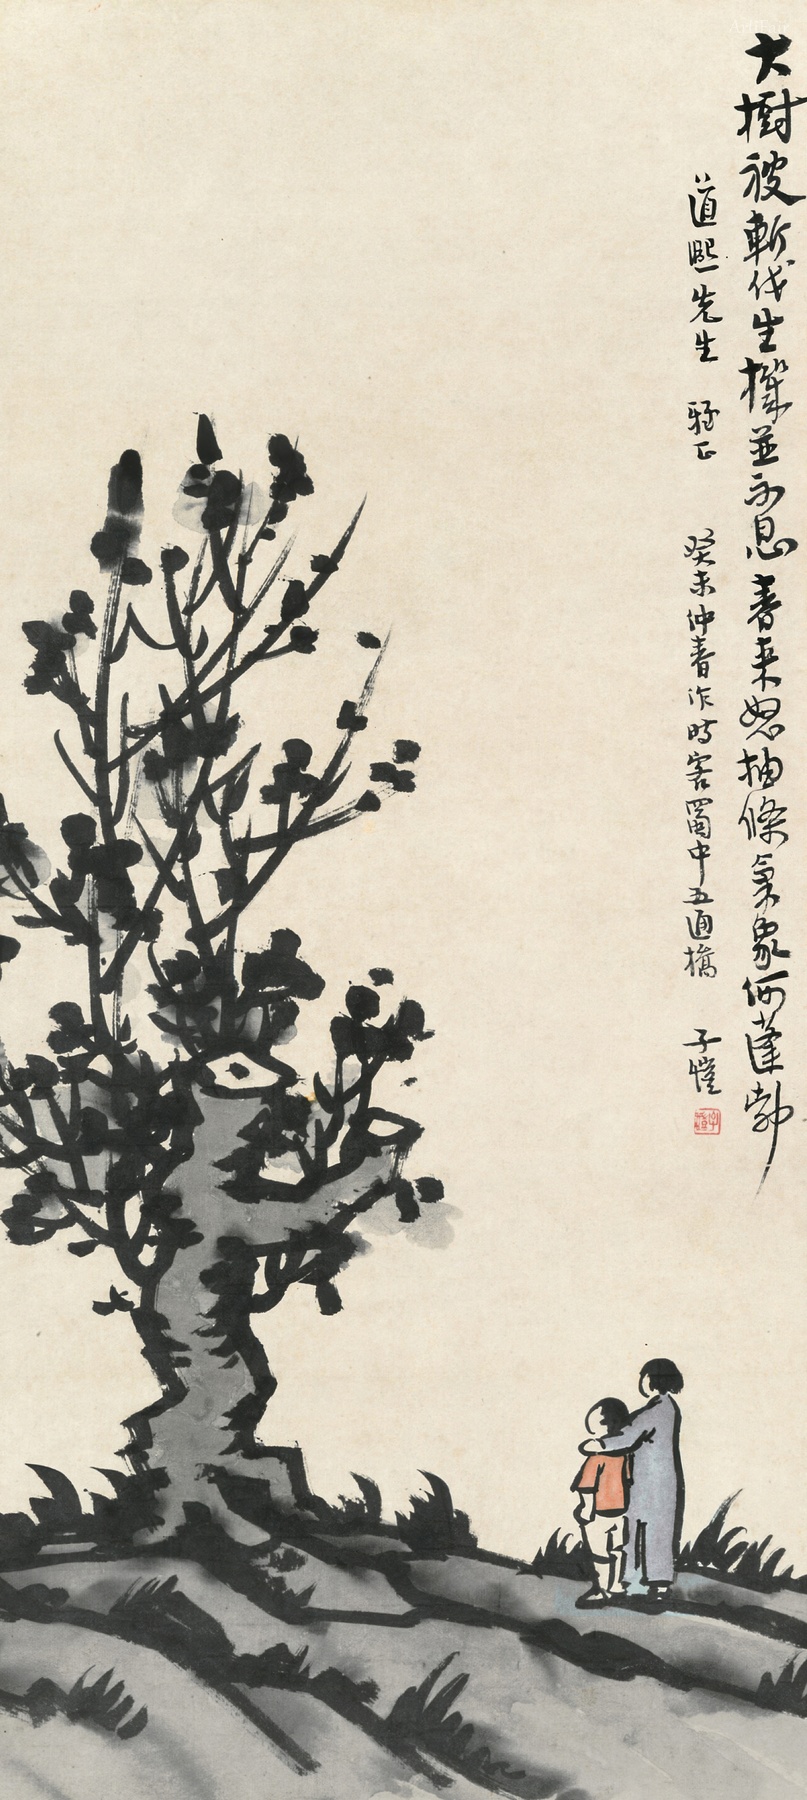 大樹被斬伐生機並不息春來怒抽條氣象何蓬勃
道熙先生 雅正 癸未仲春作時客蜀中五通橋 子愷
子愷